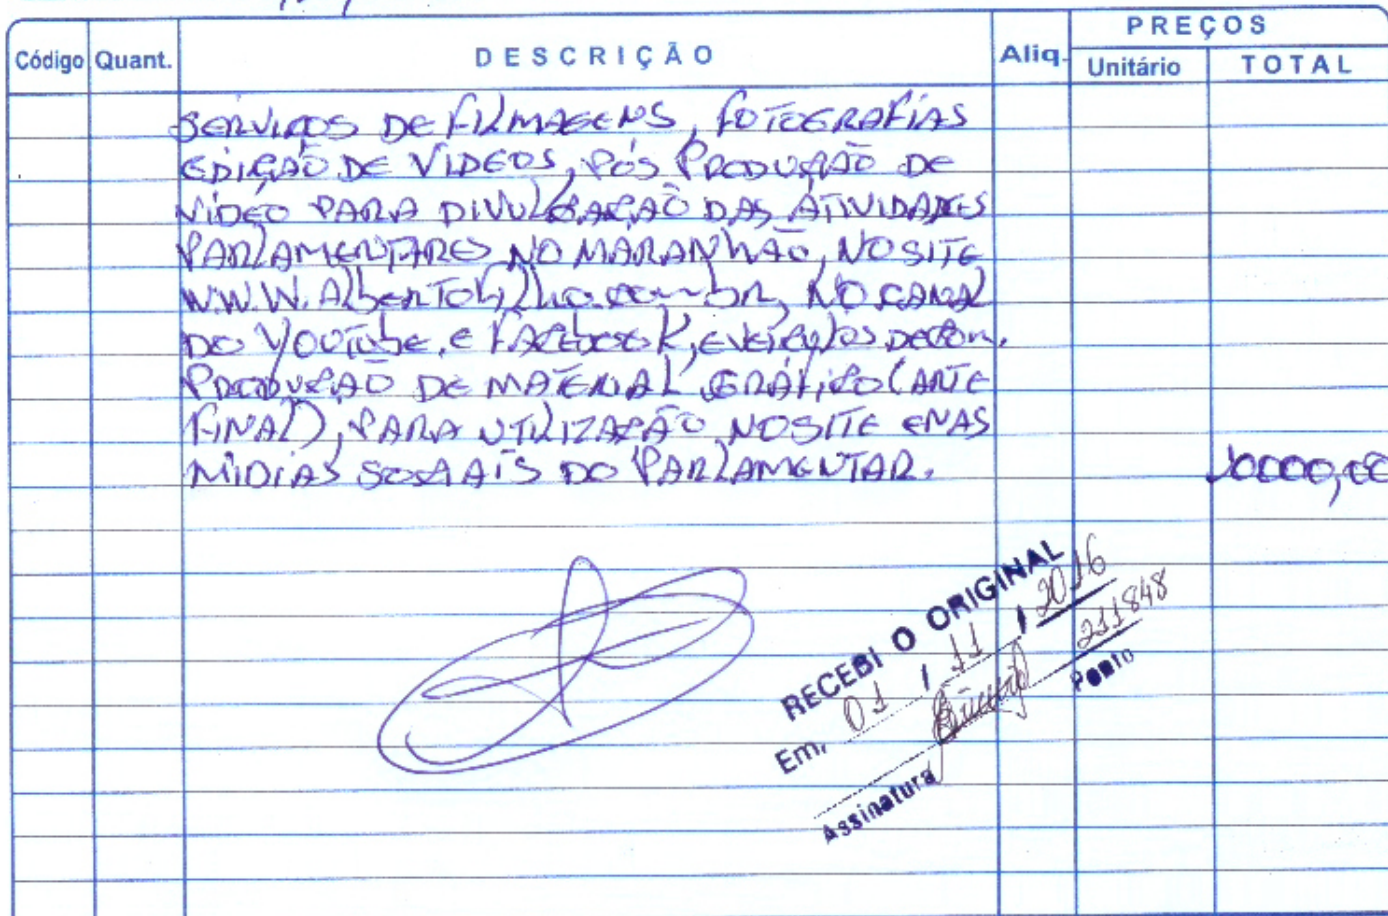 PREÇOS
Código Quant. DESCRIÇÃO Aliq. Unitário TOTAL
SERVIÇOS DE FILMAGENS, FOTOGRAFIAS
EDIÇÃO DE VÍDEOS, PÓS PRODUÇÃO DE
VÍDEO PARA DIVULGAÇÃO DAS ATIVIDADES
PARLAMENTARES NO MARANHÃO, NO SITE
W.W.W. AlbertoFilho.com.br, NO CANAL
DO YOUTUBE, E FACEBOOK, E VEÍCULOS DE COM.
PRODUÇÃO DE MATERIAL GRÁFICO (ARTE
FINAL), PARA UTILIZAÇÃO NO SITE E NAS
MÍDIAS SOCIAIS DO PARLAMENTAR. 10000,00
RECEBI O ORIGINAL
Em, 01 / 11 / 2016
211848
Assinatura Ponto